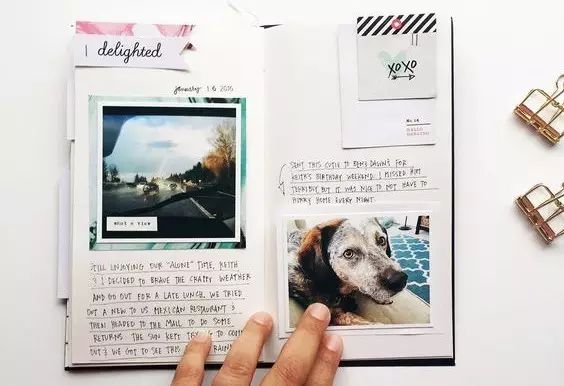 delighted
january 16 2016
what a view
STILL ENJOYING OUR "ALONE" TIME, KEITH
& I DECIDED TO BRAVE THE CRAPPY WEATHER
AND GO OUT FOR A LATE LUNCH. WE TRIED
OUT A NEW TO US MEXICAN RESTAURANT &
THEN HEADED TO THE MALL TO DO SOME
RETURNS. THE SUN KEPT TRYING TO COME
OUT & WE GOT TO SEE THIS RAIN
XOXO
hello
SENT THIS CUTIE TO DAWN'S FOR
KEITH'S BIRTHDAY WEEKEND. I MISSED HIM
TERRIBLY BUT IT WAS NICE TO NOT HAVE TO
HURRY HOME EVERY NIGHT.